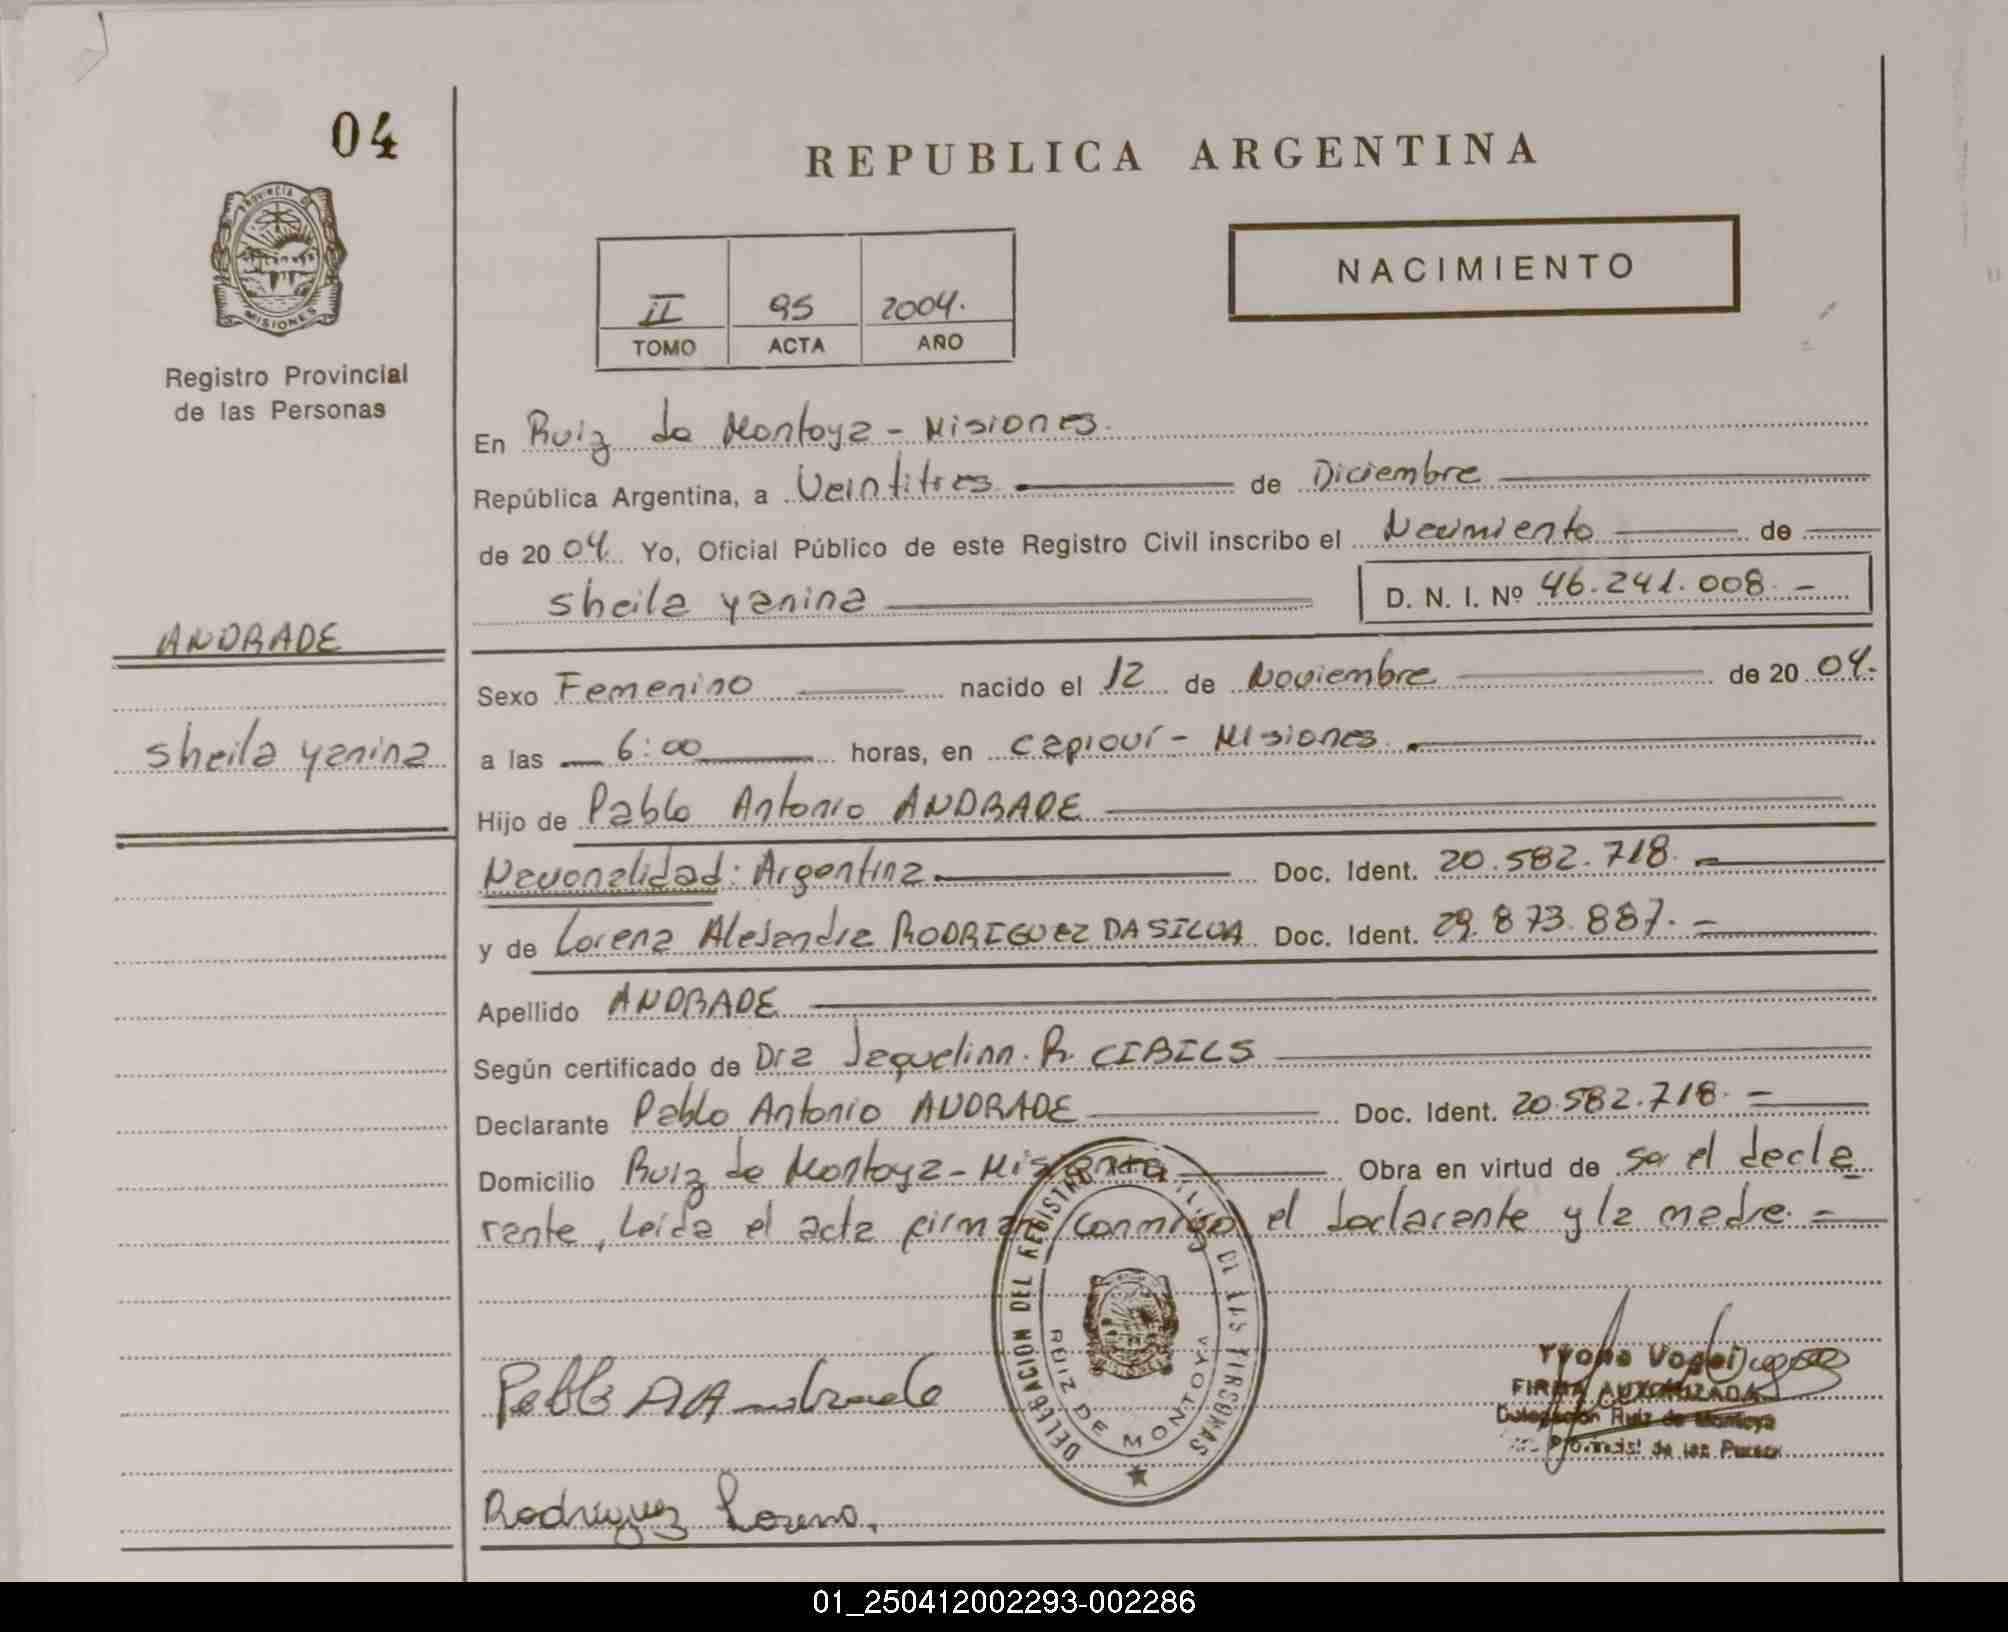 04
REPUBLICA ARGENTINA
PROVINCIA DE
MISIONES
NACIMIENTO
II 95 2004.
TOMO ACTA AÑO
Registro Provincial
de las Personas
En Ruiz de Montoya - Misiones.
República Argentina, a Veintitres de Diciembre
de 2004. Yo, Oficial Público de este Registro Civil inscribo el Nacimiento de
Sheila Yanina D. N. I. Nº 46.241.008. -
ANDRADE
Sexo Femenino nacido el 12 de Noviembre de 2004.
Sheila Yanina
a las 6:00 horas, en Capioví - Misiones.
Hijo de Pablo Antonio ANDRADE
Nacionalidad: Argentina Doc. Ident. 20.582.718.
y de Lorena Alejandra RODRIGUEZ DA SILVA Doc. Ident. 29.873.887. -
Apellido ANDRADE
Según certificado de Dra Jaquelinn. R. CIBILS
Declarante Pablo Antonio ANDRADE Doc. Ident. 20.582.718. -
Domicilio Ruiz de Montoya - Misiones Obra en virtud de ser el decla
rante, Leída el acta firman conmigo el declarante y la madre. -
DELEGACION DEL REGISTRO CIVIL DE LAS PERSONAS
RUIZ DE MONTOYA
Pablo A Andrade
FIRMA AUTORIZADA
Delegación Ruiz de Montoya
Provincial de las Person
Rodriguez Lorena.
01_250412002293-002286